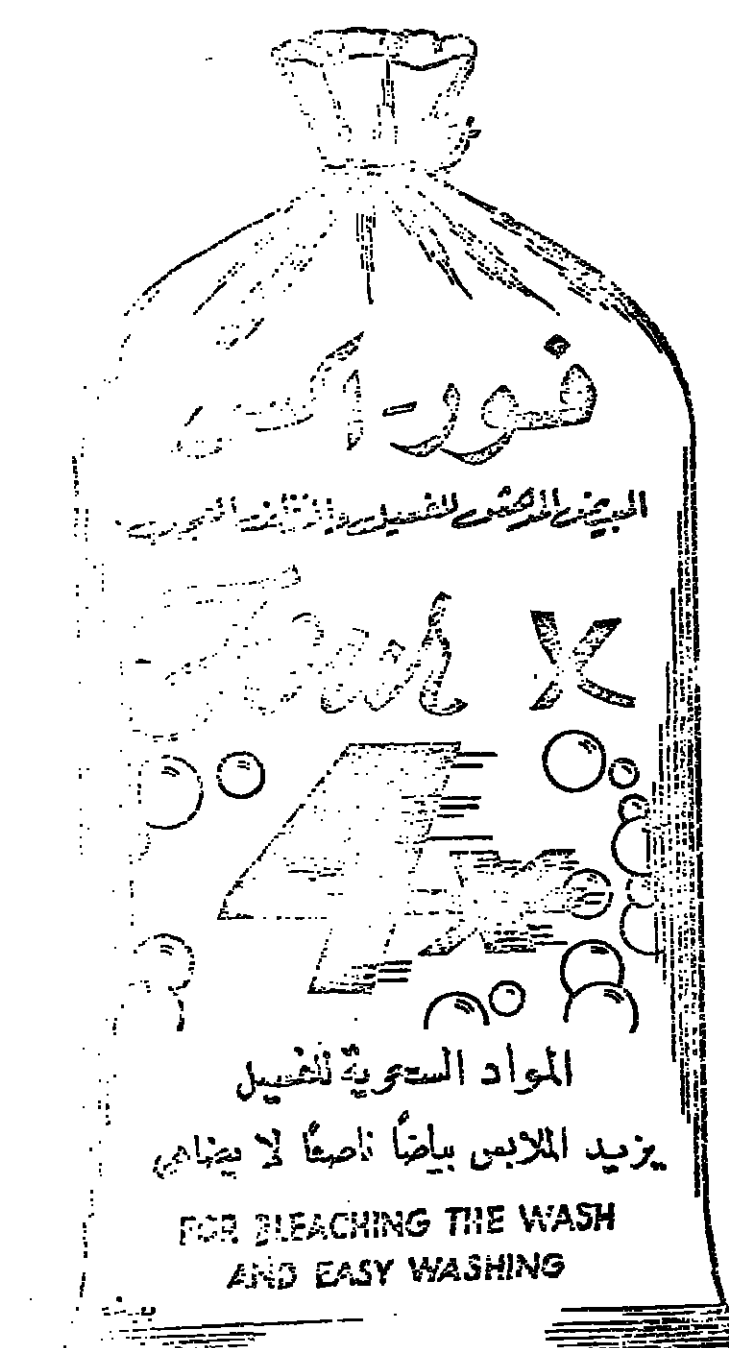 فور-اكس
المبيض المدهش للغسيل
Four X
4x
المواد السحرية للغسيل
يزيد الملابس بياضًا ناصعًا لا يضاهى
FOR BLEACHING THE WASH
AND EASY WASHING